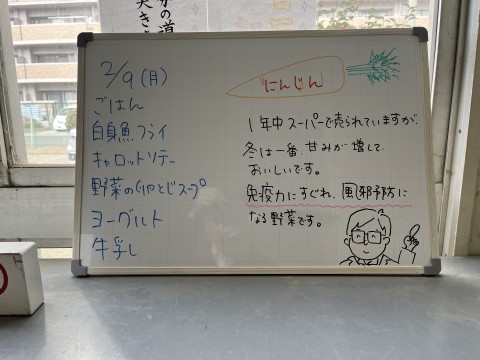 2/9(月)
ごはん
白身魚フライ
キャロットソテー
野菜のじスープ
ヨーグルト
牛乳
にんじん
1年中スーパーで売られていますが、
冬は一番、甘みが増して、
おいしいです。
免疫力にすぐれ、風邪予防に
なる野菜です。
の道
大き